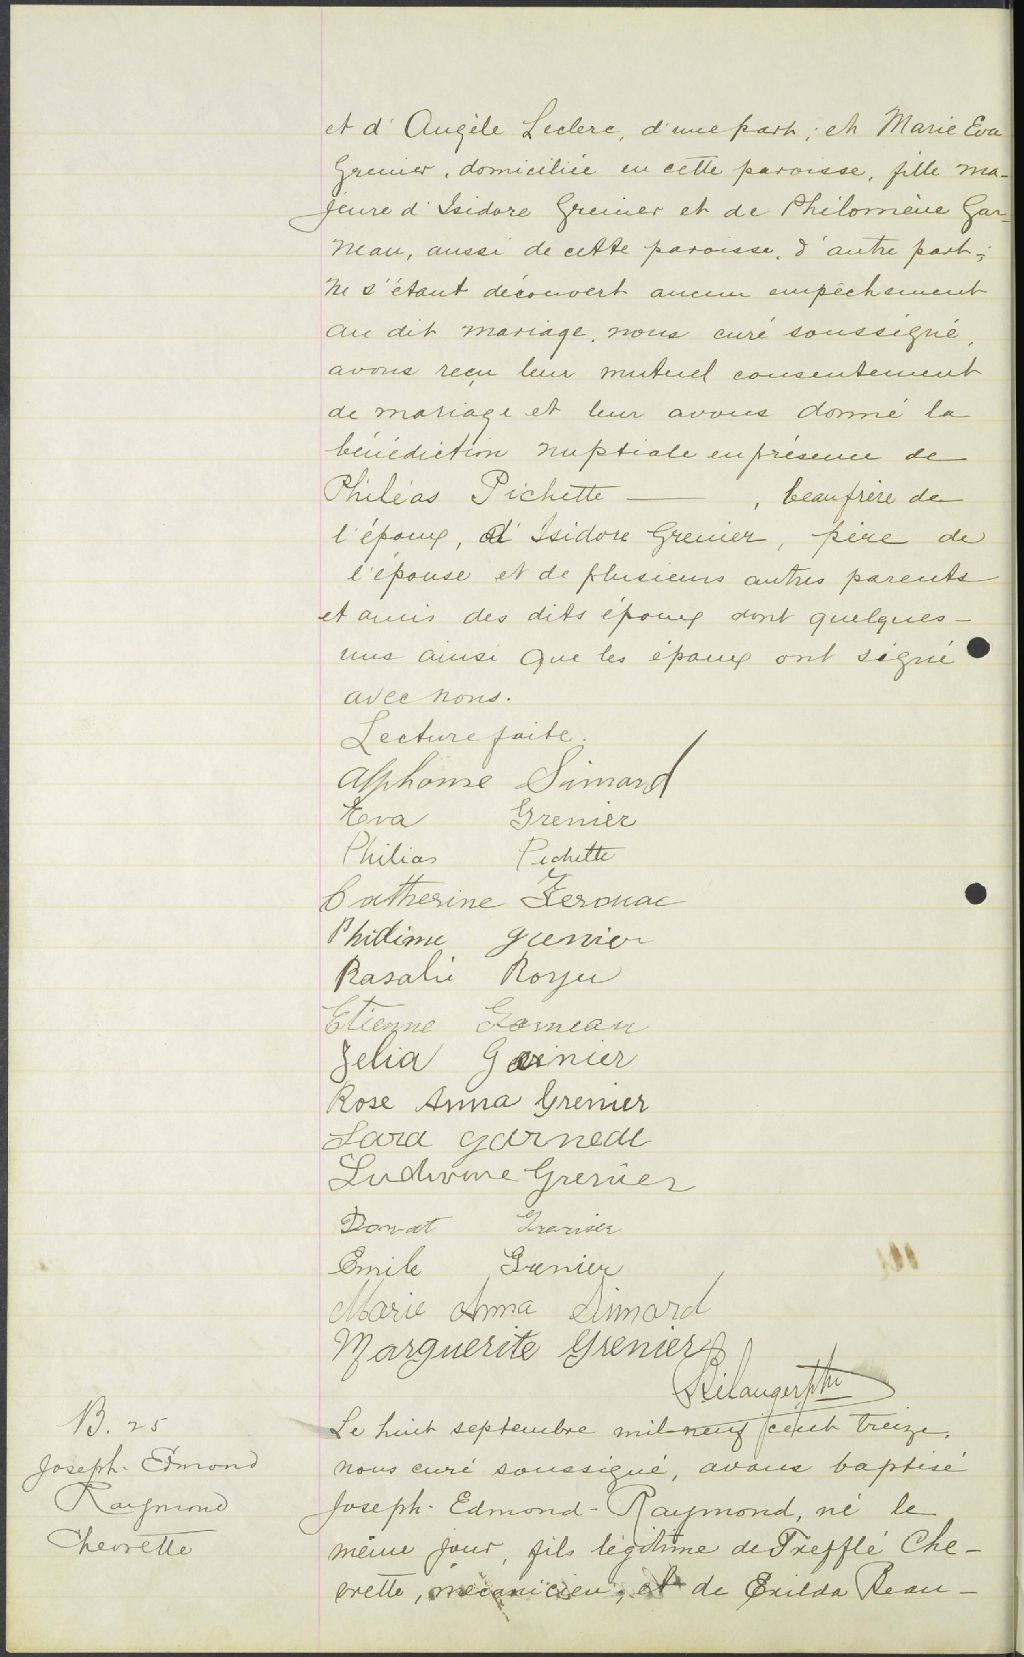 et d'Angèle Leclerc, d'une part; et Marie Eva
Grenier, domiciliée en cette paroisse, fille ma-
jeure d'Isidore Grenier et de Philomène Gar-
neau, aussi de cette paroisse, d'autre part;
ne s'étant découvert aucun empêchement
au dit mariage, nous curé soussigné,
avons reçu leur mutuel consentement
de mariage et leur avons donné la
bénédiction nuptiale en présence de
Philéas Pichette — , beaufrère de
l'époux, d'Isidore Grenier, père de
l'épouse et de plusieurs autres parents
et amis des dits époux dont quelques-
uns ainsi que les époux ont signé
avec nous.
Lecture faite.
Alphonse Simard
Eva Grenier
Philias Pichette
Catherine
Phidime Grenier
Rasalie Royer
Etienne Garneau
Zelia Grinier
Rose Anna Grenier
Lara Garneau
Ludivine Grenier
Donat Grenier
Emile Grenier
Marie Anna Simard
Marguerite Grenier
Bélanger ptre
B. 25
Joseph-Edmond
Raymond
Chevrette
Le huit septembre mil-neuf cent treize,
nous curé soussigné, avons baptisé
Joseph-Edmond-Raymond, né le
même jour, fils légitime de Trefflé Che-
vrette, mécanicien, et de Exilda Beau-